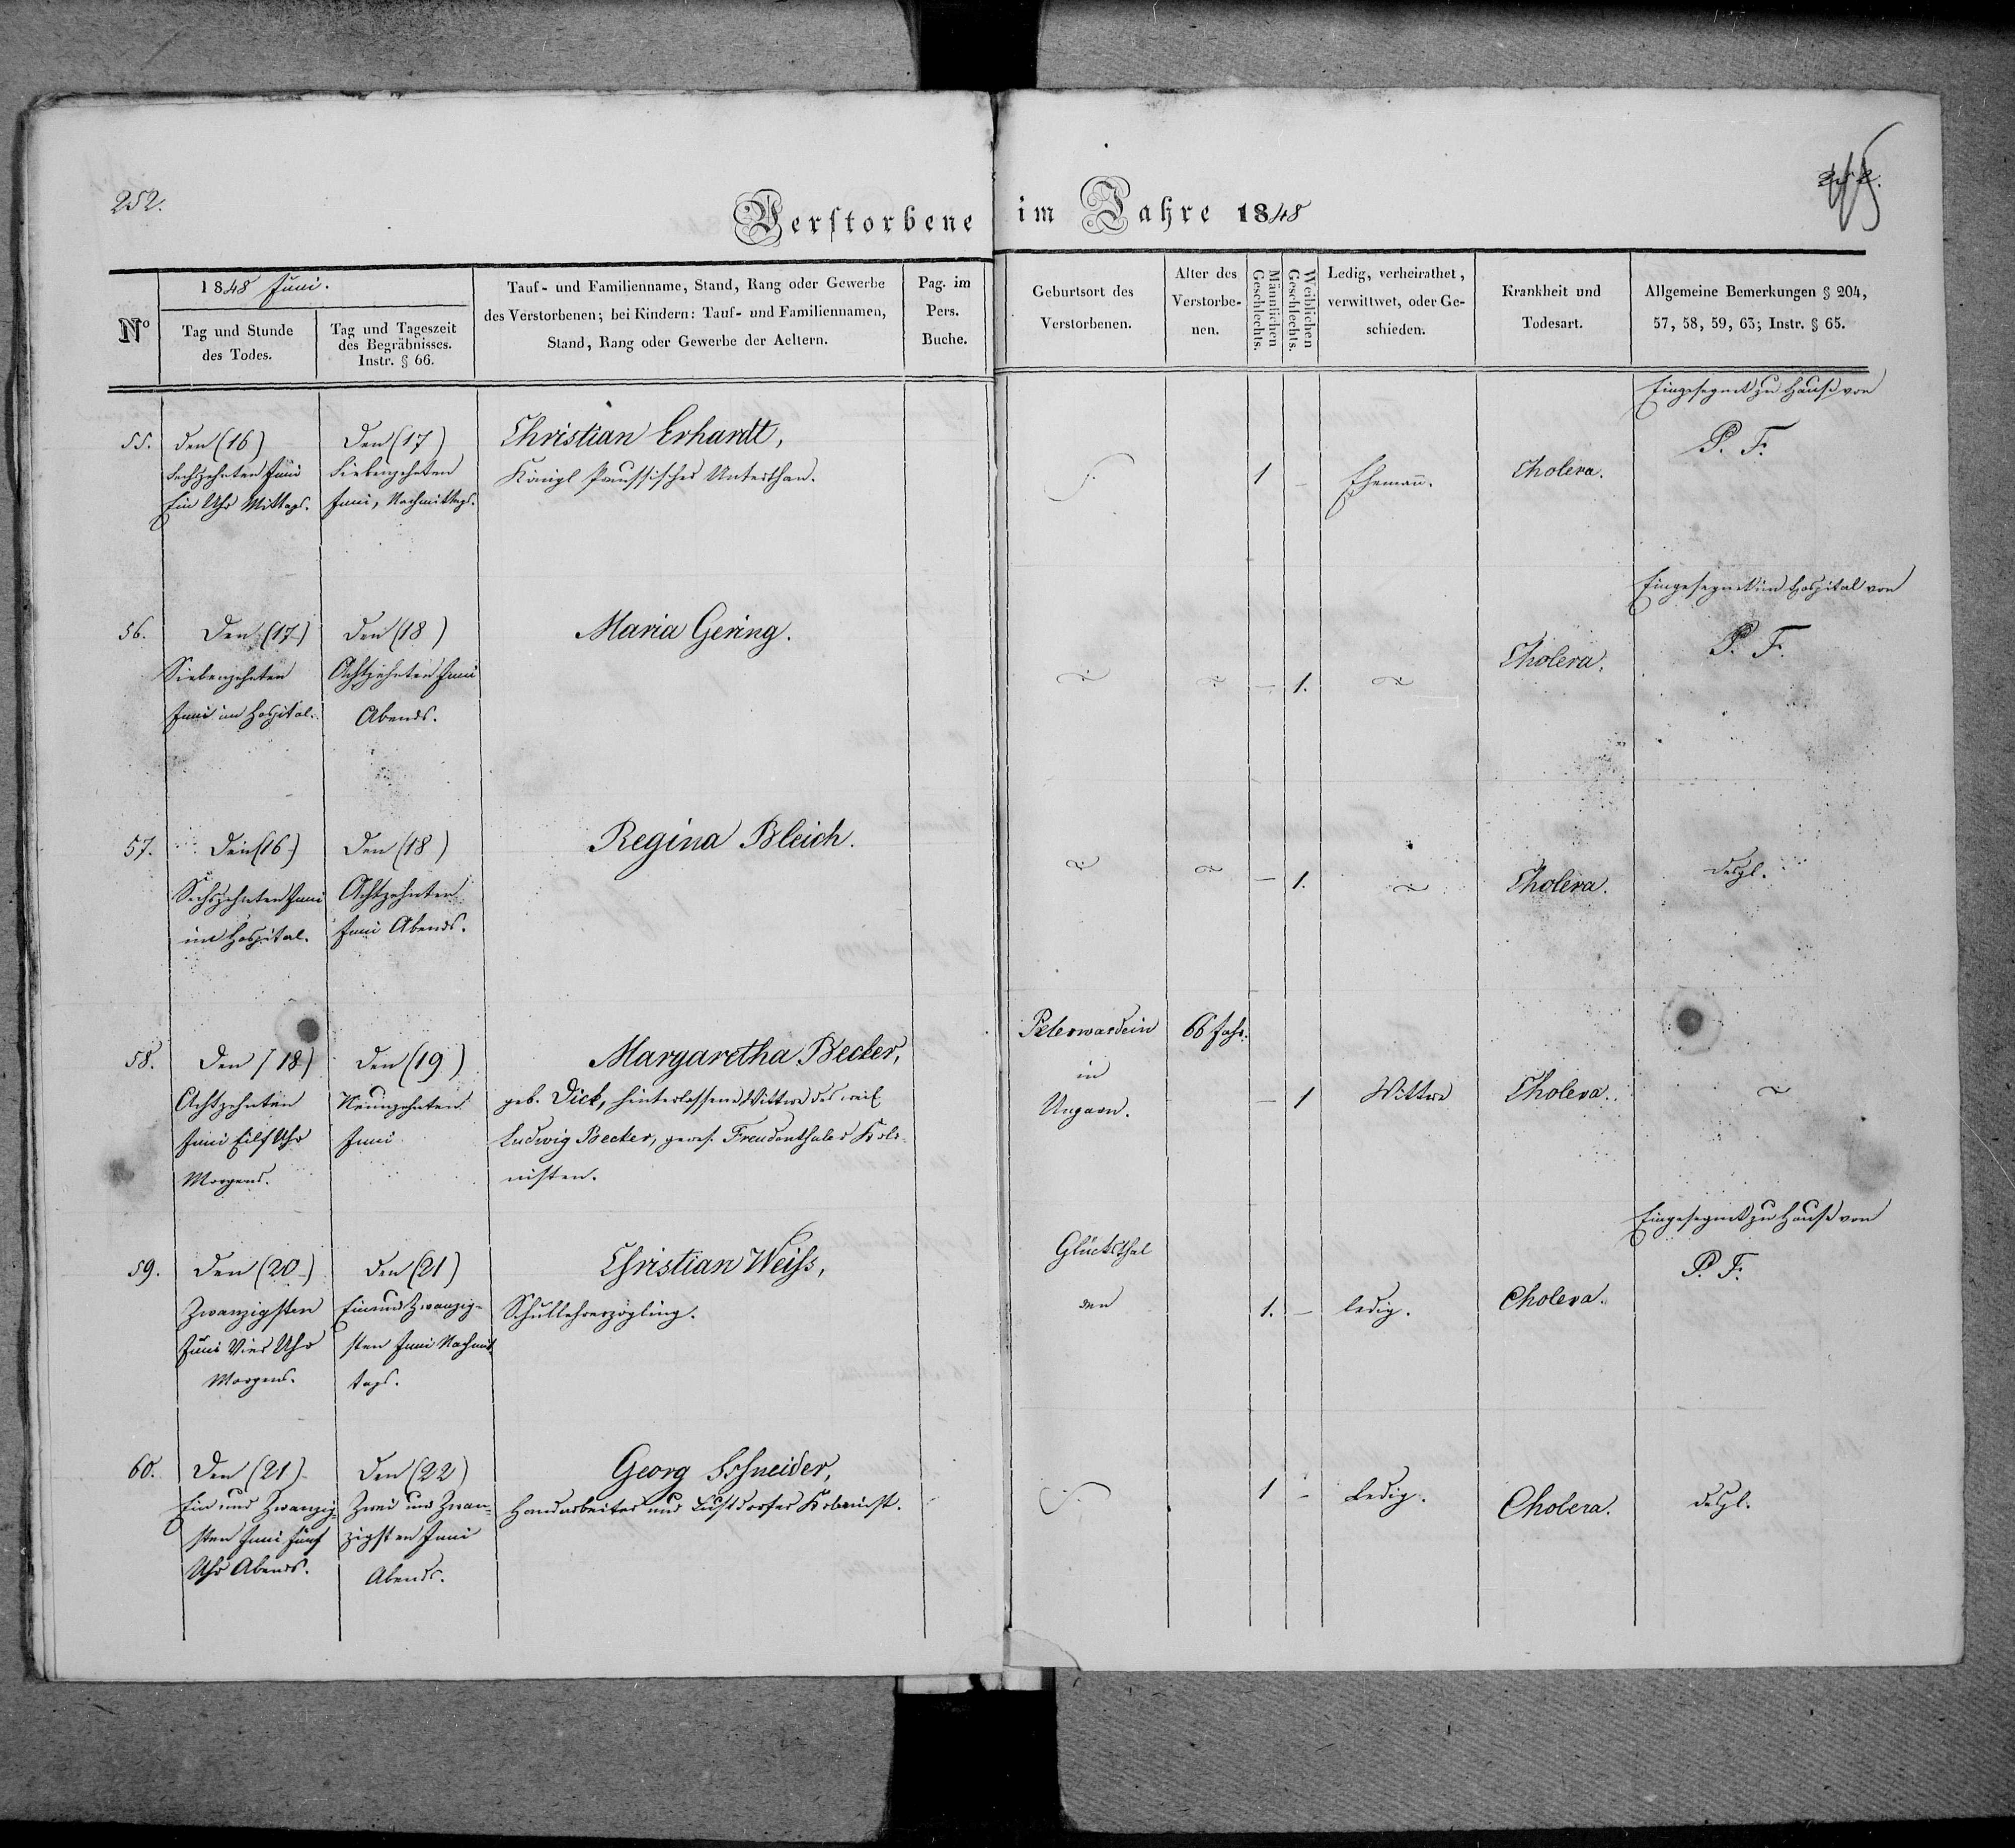 252.
Verstorbene im Jahre 1848
Nº
1848 Juni.
Tag und Stunde
des Todes.
Tag und Tageszeit
des Begräbnisses.
Instr. § 66.
Tauf- und Familienname, Stand, Rang oder Gewerbe
des Verstorbenen; bei Kindern: Tauf- und Familiennamen,
Stand, Rang oder Gewerbe der Aeltern.
Pag. im
Pers.
Buche.
Geburtsort des
Verstorbenen.
Alter des
Verstorbe-
nen.
Männlichen
Geschlechts.
Weiblichen
Geschlechts.
Ledig, verheirathet,
verwittwet, oder Ge-
schieden.
Krankheit und
Todesart.
Allgemeine Bemerkungen § 204,
57, 58, 59, 63; Instr. § 65.
55.
den (16)
Sechzehnten Juni
Ein Uhr Mittags.
Den (17)
Siebenzehnten
Juni, Nachmittags.
Christian Erhardt,
Königl Preussischer Unterthan.
1 –
Ehemañ.
Cholera.
Eingesegnet zu Hause von
P. F.
56.
Den (17)
Siebenzehnten
Juni im Hospital.
Den (18)
Achtzehnten Juni
Abends.
Maria Gering.
– 1.
Cholera.
Eingesegnet im Hospital von
P. F.
57.
Den (16)
Sechszehnten Juni
im Hospital.
Den (18)
Achtzehnten
Juni Abends.
Regina Bleich.
– 1.
Cholera.
desgl.
58.
Den (18)
Achtzehnten
Juni Eilf Uhr
Morgens.
Den (19)
Neunzehnten
Juni
Margaretha Becker,
geb. Dick, hinterlassene Wittwe des weil
Ludwig Becker, gewes. Freudenthaler Kolo-
nisten.
Peterwardein
in
Ungarn.
66 Jahr.
– 1
Wittwe
Cholera.
59.
Den (20)
Zwanzigsten
Juni Vier Uhr
Morgens.
Den (21)
Einund Zwanzig-
sten Juni Nachmit
tags.
Christian Weiss,
Schullehrerzögling.
Glücksthal
den
1. –
ledig.
Cholera.
Eingesegnet zu Hause von
P. F.
60.
Den (21)
Ein und Zwanzig-
sten Juni Fünf
Uhr Abends.
Den (22)
Zwei und Zwan-
zigsten Juni
Abends.
Georg Schneider,
Handarbeiter und Lustdorfer Kolonist.
1 –
Ledig.
Cholera.
desgl.